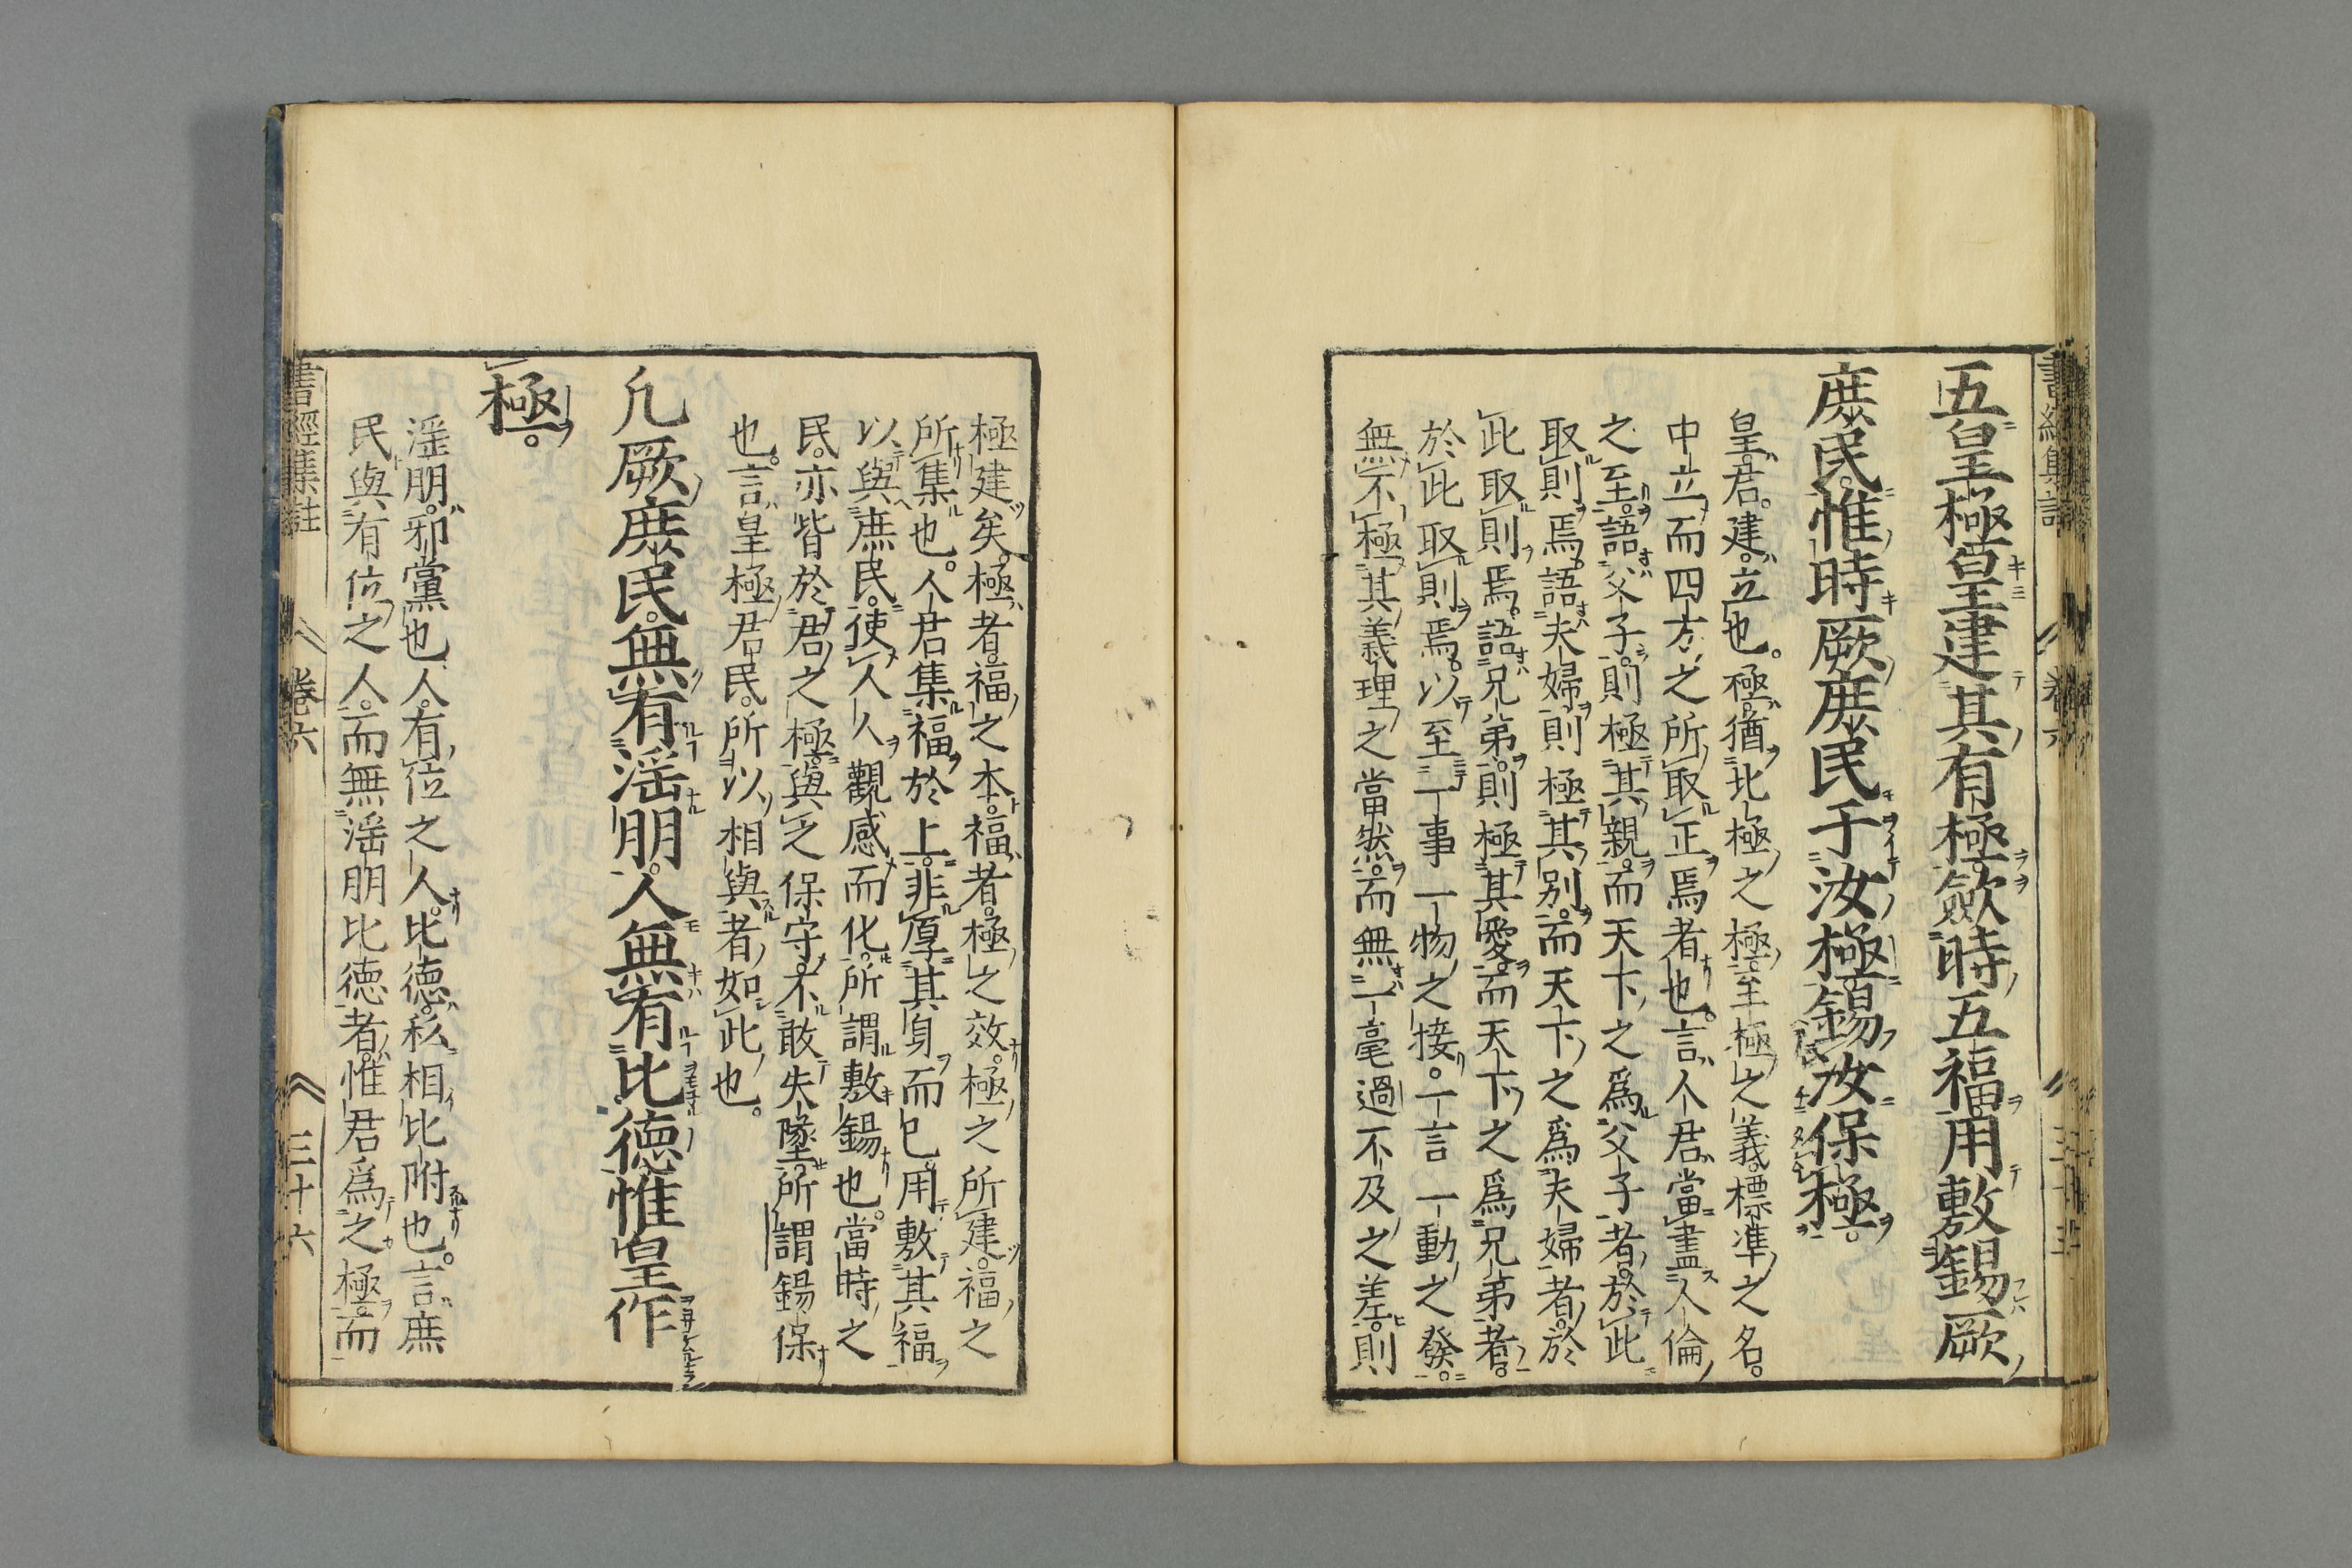 五皇極皇建其有極。斂時五福。用敷錫厥
庶民。惟時厥庶民于汝極。錫汝保極。
皇。君。建。立也。極。猶北極之極。至極之義。標準之名。
中立而四方之所取正焉者也。言人君當盡人倫
之至。語父子。則極其親。而天下之爲父子者。於此
取則焉。語夫婦。則極其別。而天下之爲夫婦者。於
此取則焉。語兄弟。則極其愛。而天下之爲兄弟者。
於此取則焉。以至一事一物之接。一言一動之發。
無不極其義理之當然。而無一毫過不及之差。則
極建矣。極者。福之本。福者。極之效。極之所建。福之
所集也。人君集福於上。非厚其身而已。用敷其福
以與庶民。使人人觀感而化。所謂敷錫也。當時之
民。亦皆於君之極。與之保守。不敢失墜。所謂錫保
也。言皇極君民。所以相與者。如此也。
凡厥庶民。無有淫朋。人無有比德。惟皇作
極。
淫朋。邪黨也。人。有位之人。比德。私相比附也。言庶
民與有位之人。而無淫朋比德者。惟君爲之極。而
書經集註 卷六 三十六